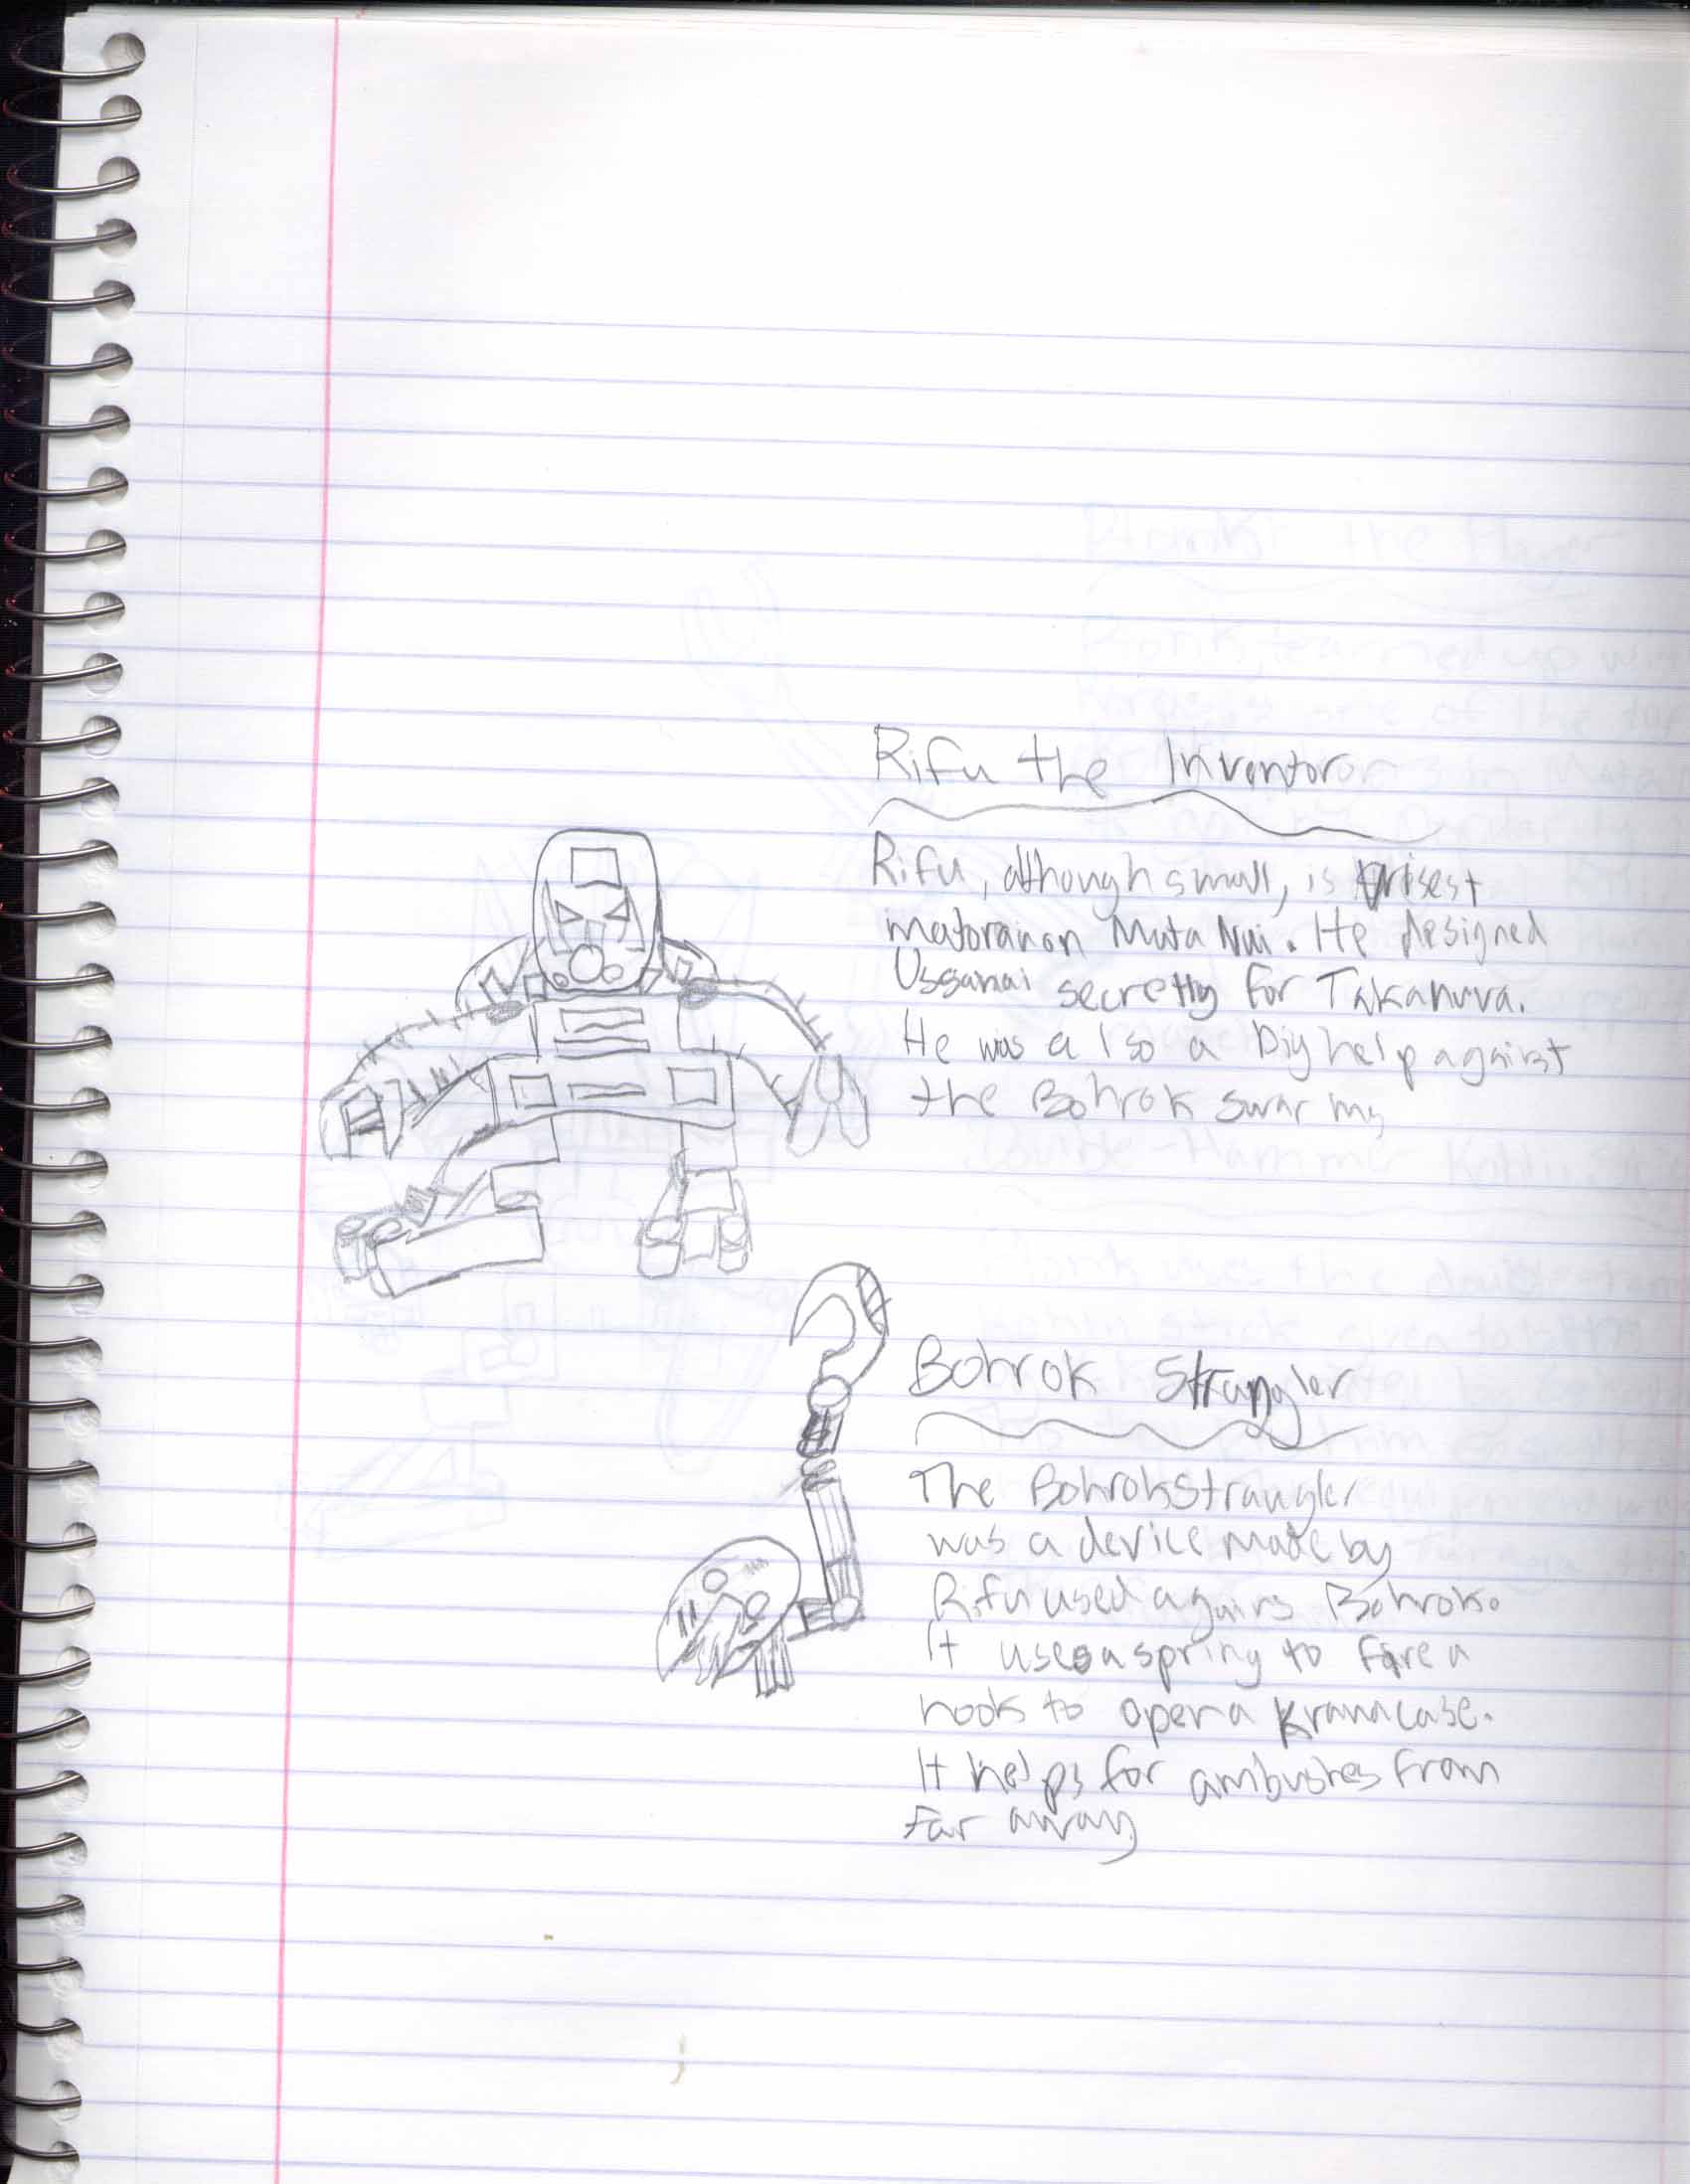 Rifu the Inventor
Rifu, although small, is
matoran on Mata Nui. He designed
Ussanai secretly for Takanuva.
He was also a Big help against
the Bohrok swarms
Bohrok Strangler
The Bohrok Strangler
was a device made by
Rifu used agains Bohrok.
It uses a spring to fire a
hook to open a krana case.
It helps for ambushes from
far away